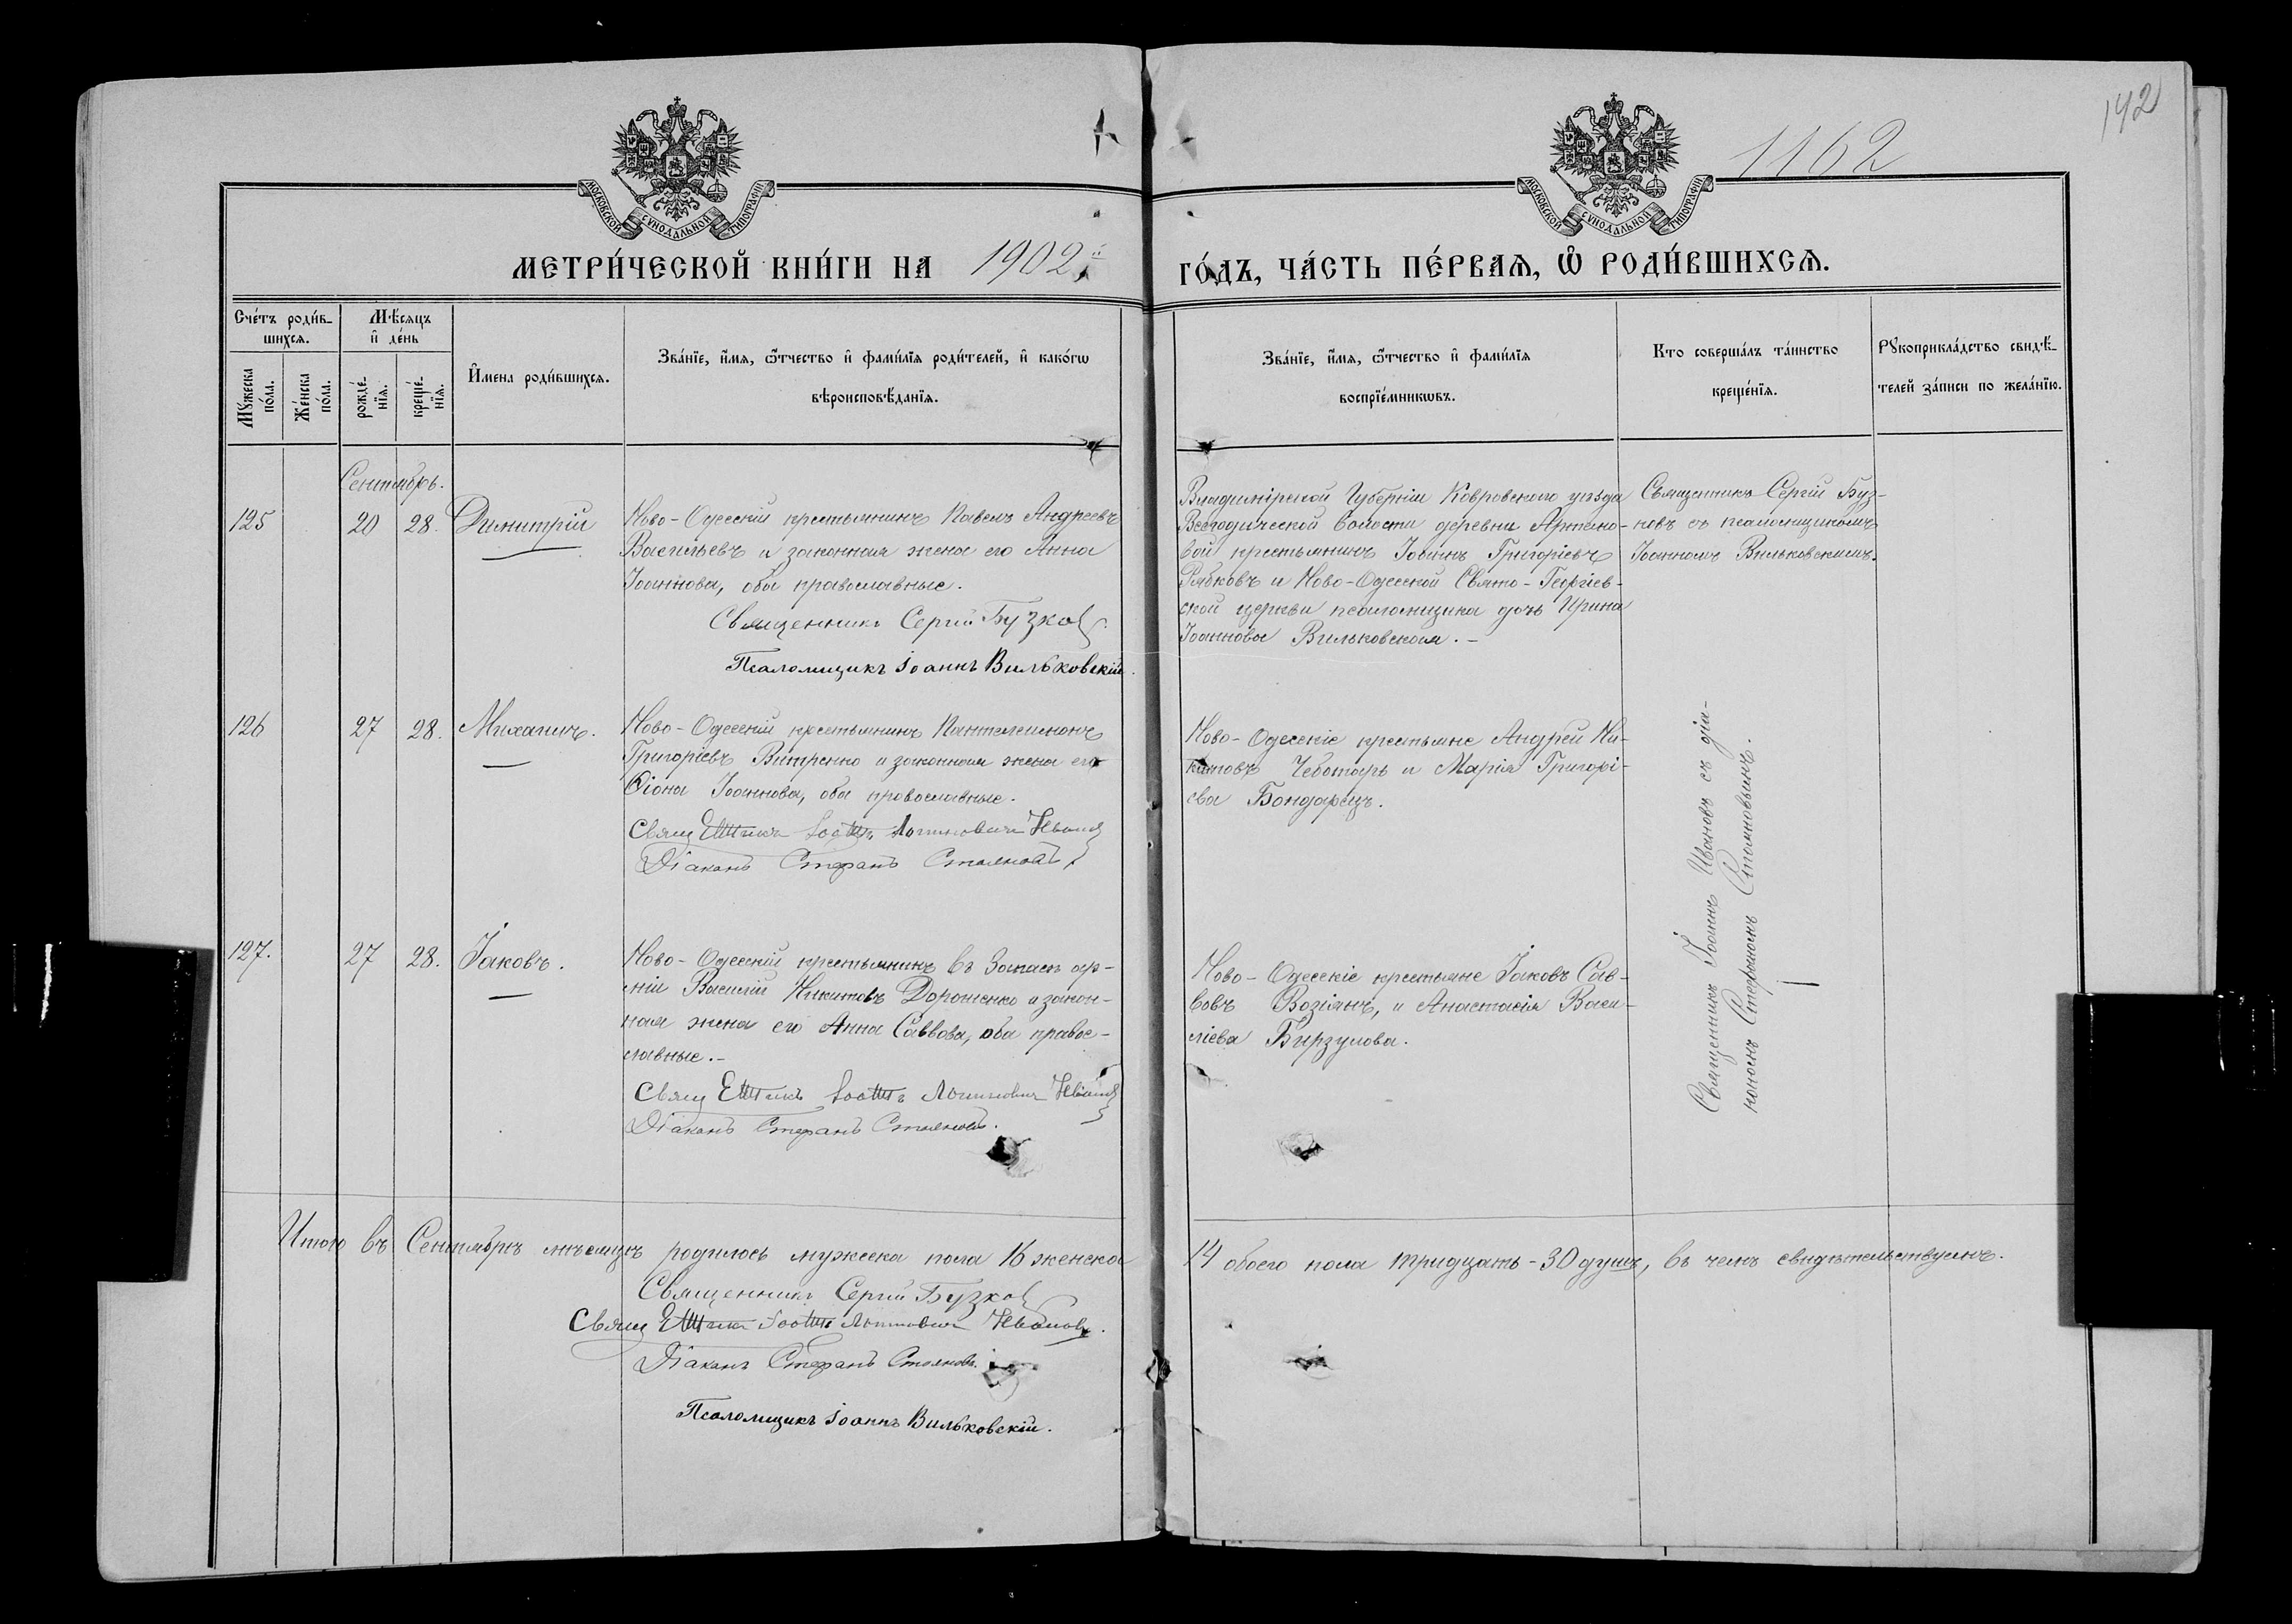 142
1162
МОСКОВСКОЙ СѴНОДАЛЬНОЙ ТИПОГРАФІИ
МОСКОВСКОЙ СѴНОДАЛЬНОЙ ТИПОГРАФІИ
МЕТРИ́ЧЕСКОЙ КНИ́ГИ НА 1902й ГО́ДЪ, ЧА́СТЬ ПЕ́РВАЯ, Ѡ РОДИ́ВШИХСЯ.
Сче́тъ роди́в-
шихся.
Му́жеска по́ла.
Же́нска по́ла.
Мѣ́сяцъ и де́нь
рожде́-
нїя.
креще́-
нїя.
И́мена роди́вшихся.
Зва́нїе, и́мя, ѻ́тчество и фами́лїя роди́телей, и како́гѡ
вѣроисповѣ́данїя.
Зва́нїе, и́мя, ѻ́тчество и фами́лїя
воспрїе́мникѡвъ.
Кто соверша́лъ та́инство
креще́нїя.
Рꙋкоприкла́дство свидѣ́-
телей за́писи по жела́нїю.
Сентябрь.
125 20 28. Димитрій
Ново-Одесскій крестьянинъ Павелъ Андреевъ
Васильевъ и законная жена его Анна
Іоаннова, оба православные.
Священникъ Сергій Бузковъ
Псаломщикъ Іоаннъ Вильковскій.
Владимірской Губерніи Ковровского уѣзда
Всегодической волости деревни Артемо-
вой крестьянинъ Іоаннъ Григоріевъ
Рябковъ и Ново-Одесской Свято-Георгіев-
ской церкви псаломщика дочь Ирина
Іоаннова Вильковская.-
Священникъ Сергій Буз-
ковъ съ псаломщикомъ
Іоанномъ Вильковскимъ.
126 27 28. Михаилъ.
Ново-Одесскій крестьянинъ Пантелеимонъ
Григоріевъ Витренко и законная жена его
Ѳіона Іоаннова, оба православные.
Священникъ Іоаннъ Логиновичъ Ивановъ
Діаконъ Стефанъ Стояновъ
Ново-Одесскіе крестьяне Андрей Ни-
китовъ Чеботарь и Марія Григорі-
ева Бондарецъ.
Священникъ Іоаннъ Ивановъ съ діа-
кономъ Стефаномъ Стояновымъ.
127. 27 28. Іаковъ.
Ново-Одесскій крестьянинъ въ запасѣ ар-
міи Василій Никитовъ Дорошенко и закон-
ная жена его Анна Саввова, оба правос-
лавные.-
Священникъ Іоаннъ Логиновичъ Ивановъ
Діаконъ Стефанъ Стояновъ.
Ново-Одесскіе крестьяне Іаковъ Сав-
вовъ Возіянъ, и Анастасія Васи-
ліева Бирзулова.
Итого въ Сентябрѣ мѣсяцѣ родилось мужеска пола 16 женска 14 обоего пола тридцать-30 душъ, въ чемъ свидѣтельствуемъ.
Священникъ Сергій Бузковъ
Священникъ Іоаннъ Логиновичъ Ивановъ.
Діаконъ Стефанъ Стояновъ.
Псаломщикъ Іоаннъ Вильковскій.